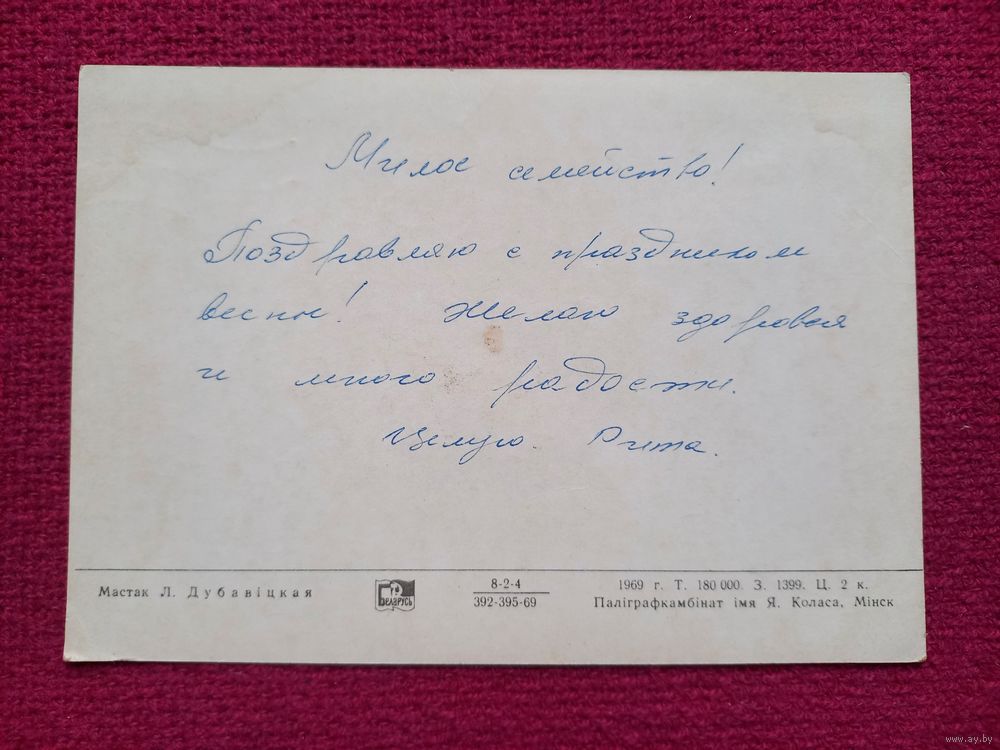 Милое семейство!
Поздравляю с праздником
весны! Желаю здоровья
и много радости.
Целую. Рита.
Мастак Л. Дубавіцкая
БЕЛАРУСЬ
8-2-4
392-395-69
1969 г. Т. 180 000. З. 1399. Ц. 2 к.
Паліграфкамбінат імя Я. Коласа, Мінск
www.ay.by